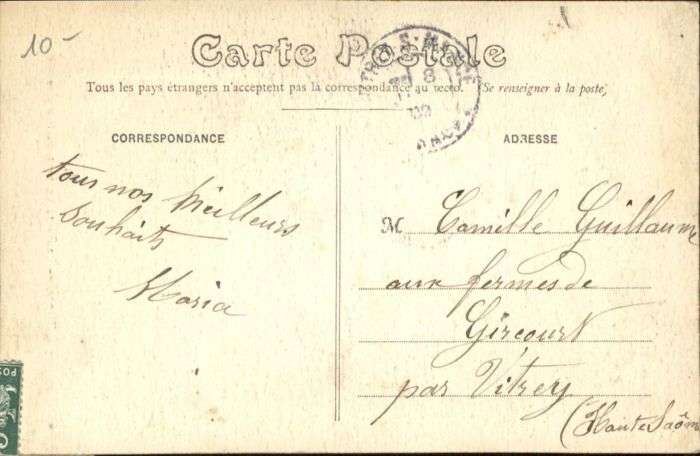 10-
Carte Postale
Tous les pays étrangers n'acceptent pas la correspondance au recto. (Se renseigner à la poste)
CORRESPONDANCE
tous nos meilleurs
souhaits
Maria
ADRESSE
M Camille Guillaume
aux fermes de
Gircourt
par Vitrey
(Haute Saône
POS